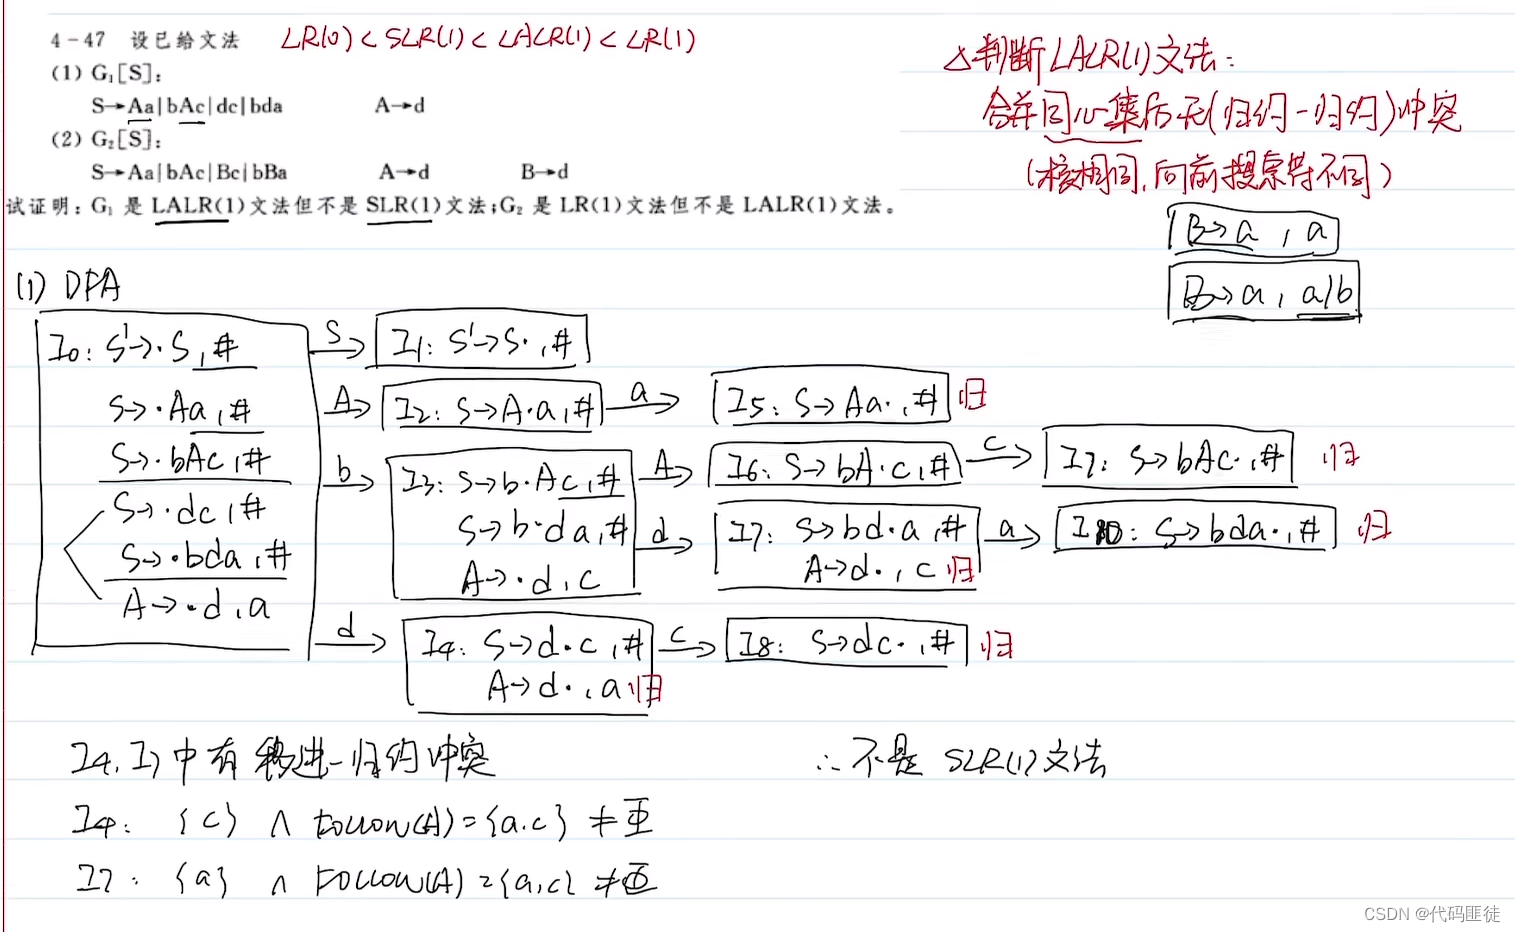 4-47 设已给文法 LR(0) < SLR(1) < LALR(1) < LR(1)
(1) G₁[S]:
S→Aa|bAc|dc|bda A→d
(2) G₂[S]:
S→Aa|bAc|Bc|bBa A→d B→d
试证明:G₁是LALR(1)文法但不是SLR(1)文法;G₂是LR(1)文法但不是LALR(1)文法。
△判断LALR(1)文法:
合并同心集后无(归约-归约)冲突
(核相同,向前搜索符不同)
B→a , a
B→a , a/b
(1) DFA
I0: S'→·S,#
S→·Aa,#
S→·bAc,#
S→·dc,#
S→·bda,#
A→·d,a
S
I1: S'→S·,#
A
I2: S→A·a,#
a
I5: S→Aa·,# 归
b
I3: S→b·Ac,#
S→b·da,#
A→·d,c
A
I6: S→bA·c,#
c
I7: S→bAc·,# 归
d
I7: S→bd·a,#
A→d·,c 归
a
I10: S→bda·,# 归
d
I4: S→d·c,#
A→d·,a 归
c
I8: S→dc·,# 归
I4,I7中有移进-归约冲突 ∴不是SLR(1)文法
I4: {c} ∩ Follow(A)={a,c} ≠
I7: {a} ∩ Follow(A)={a,c} ≠
CSDN @代码匪徒